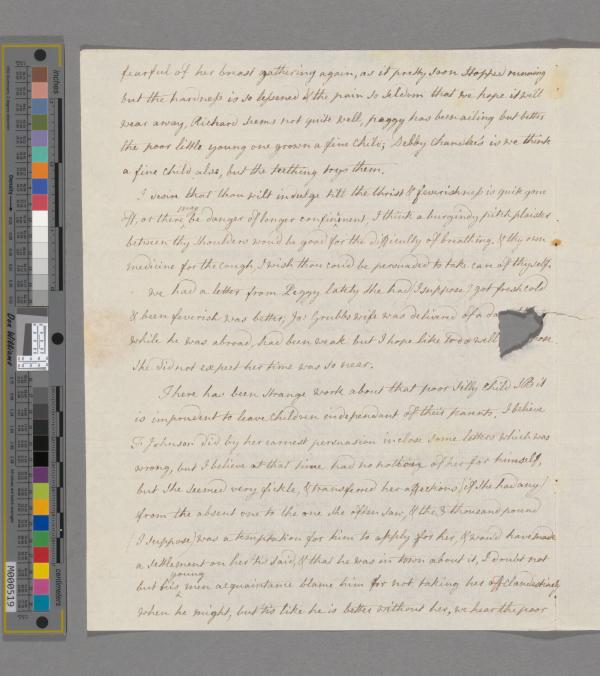 fearful of her breast gathering again, as it pretty soon stopped running
but the hardness is so lessened & the pain so seldom that we hope it will
wear away, Richard seems not quite well, peggy has been ailing but better
the poor little young one grown a fine Child; Debby is we think
a fine Child also, but the teething trys them.
I desire that thou wilt indulge till the thirst & feverishness is quite gone
off, or there may be danger of longer confinement, I think a burgundy pitch plaister
between thy shoulders would be good for the difficulty of breathing. & thy own
medicine for the cough, I wish thou could be persuaded to take care of thyself.
We had a letter from Peggy lately she had I suppose got fresh cold
& been feverish was better; Ja: Grubbs wife was delivered of a
while he was abroad, had been weak but I hope like to do well
She did not expect her time was so near.
There has been strange work about that poor silly Child it
is imprudent to leave Children independant of their parents, I believe
Johnson did by her earnest persuasion inclose some letters which was
wrong, but I believe at that time had no notion of her for himself,
but she seemed very fickle, & transferred her affections (if she had any)
from the absent one to the one she often saw, & the 8 thousand pound
(I suppose) was a temptation for him to apply for her, & would have made
a settlement on her tis said, & that he was in town about it, I doubt not
but his young men acquaintance blame him for not taking her off clandestinely
when he might, but tis like he is better without her, we hear the poor
inches
centimetres
Don Williams
M000519